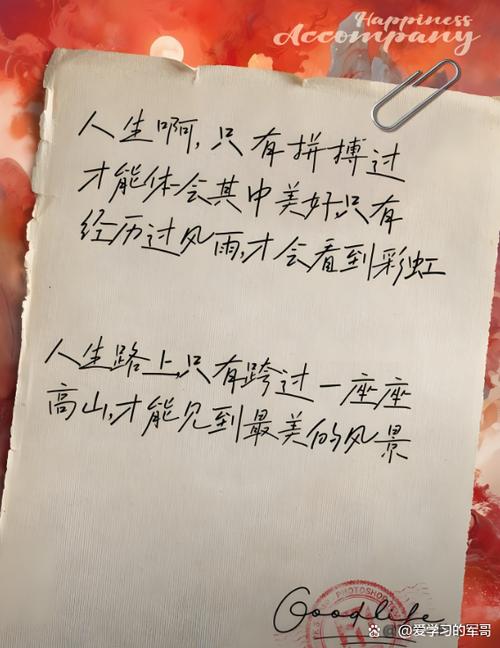 Happiness
Accompany
人生啊,只有拼搏过
才能体会其中美好,只有
经历过风雨,才会看到彩虹
人生路上,只有跨过一座座
高山,才能见到最美的风景
Goodlife
PHOTOSHOP
@爱学习的军哥